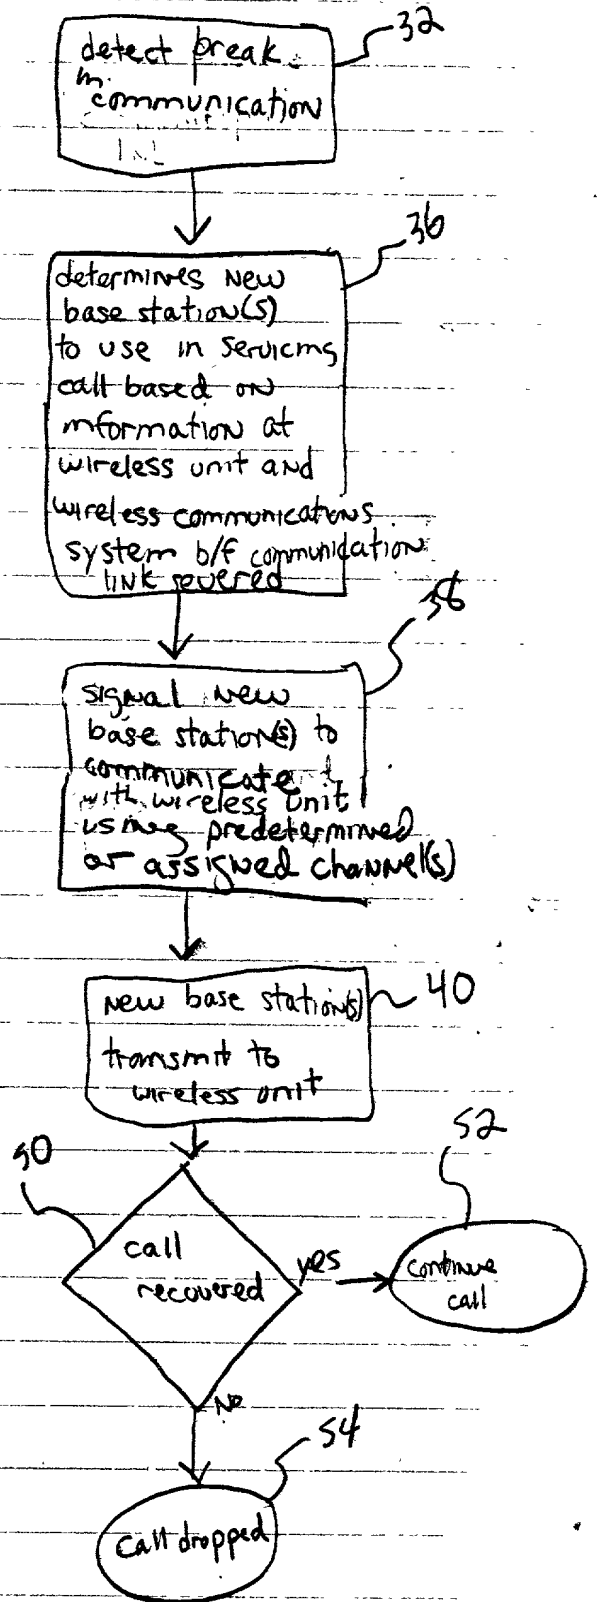 32
detect break
in
communication
36
determines new
base station(s)
to use in servicing
call based on
information at
wireless unit and
wireless communications
system b/f communication
link severed
38
signal new
base station(s) to
communicate
with wireless unit
using predetermined
or assigned channel(s)
40
new base station(s)
transmit to
wireless unit
50
52
call
recovered
yes
continue
call
No
54
call dropped